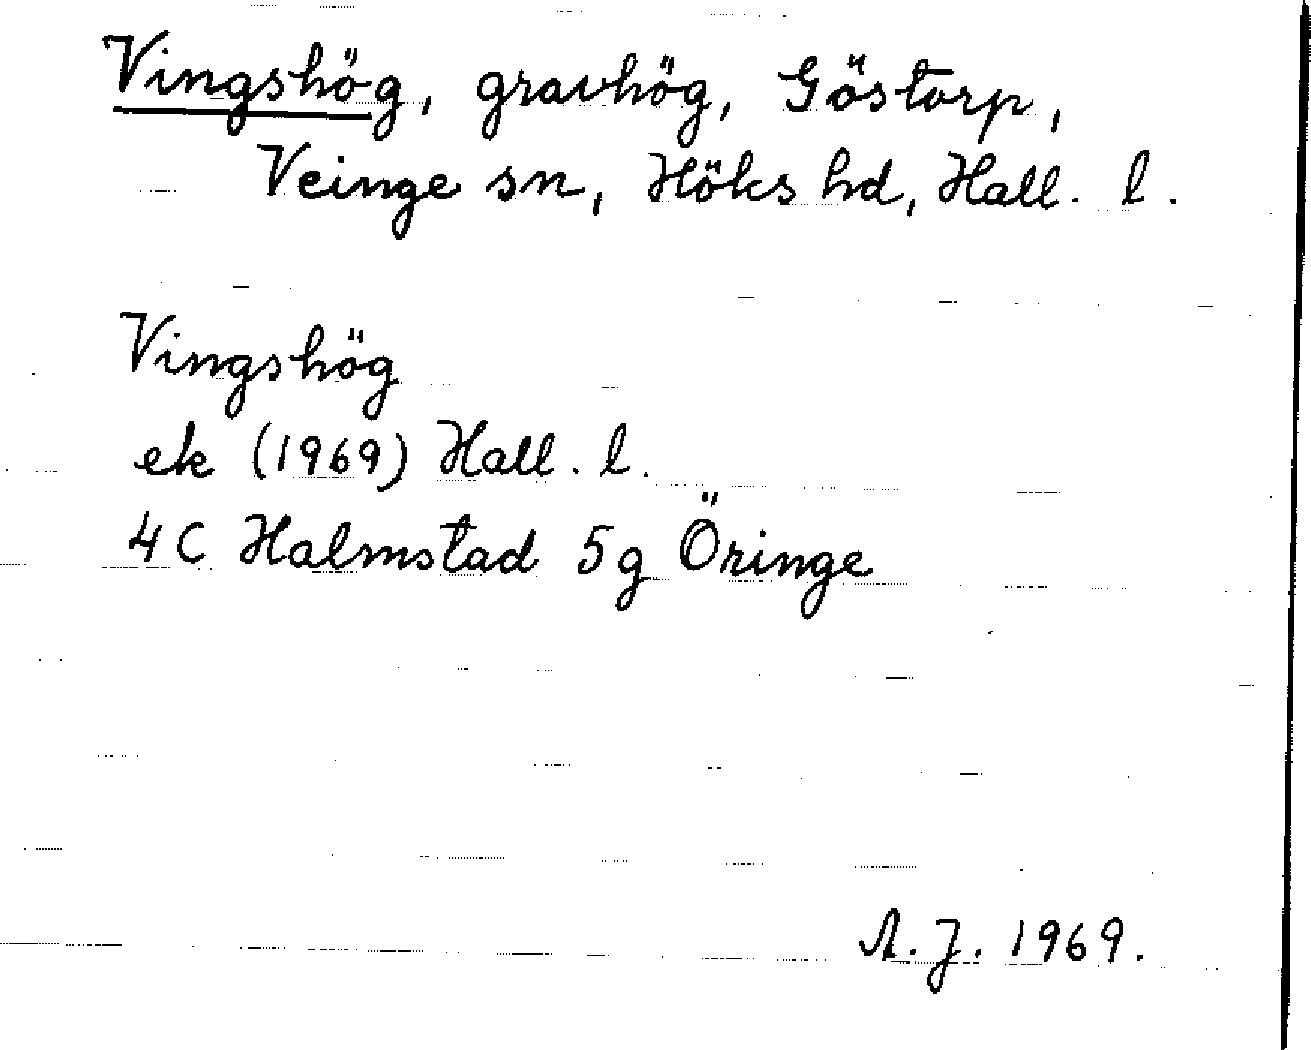 Vingshög, gravhög, Göstorp,
Veinge sn, Höks hd, Hall. l.
Vingshög
ek (1969) Hall. l.
4C Halmstad 5g Öringe
A.J. 1969.